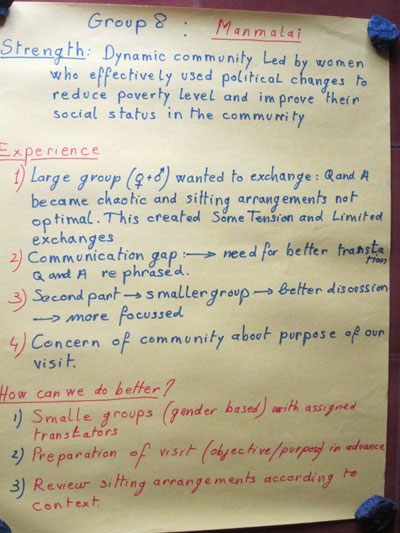 Group 8 : Manmalai
Strength: Dynamic community Led by women
who effectively used political changes to
reduce poverty level and improve their
social status in the community
Experience
1) Large group (♀+♂) wanted to exchange: Q and A
became chaotic and sitting arrangements not
optimal. This created Some Tension and Limited
exchanges
2) Communication gap: → need for better translation
Q and A re phrased.
3) Second part → smaller group → better discussion
→ more focussed
4) Concern of community about purpose of our
visit.
How can we do better?
1) Smalle groups (gender based) with assigned
translators
2) Preparation of visit (objective/purpose) in advance
3) Review sitting arrangements according to
context.